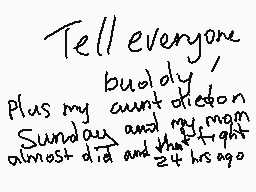 Tell everyone
buddy!
Plus my aunt died on
Sunday and my mom
almost did and that fright
24 hrs ago